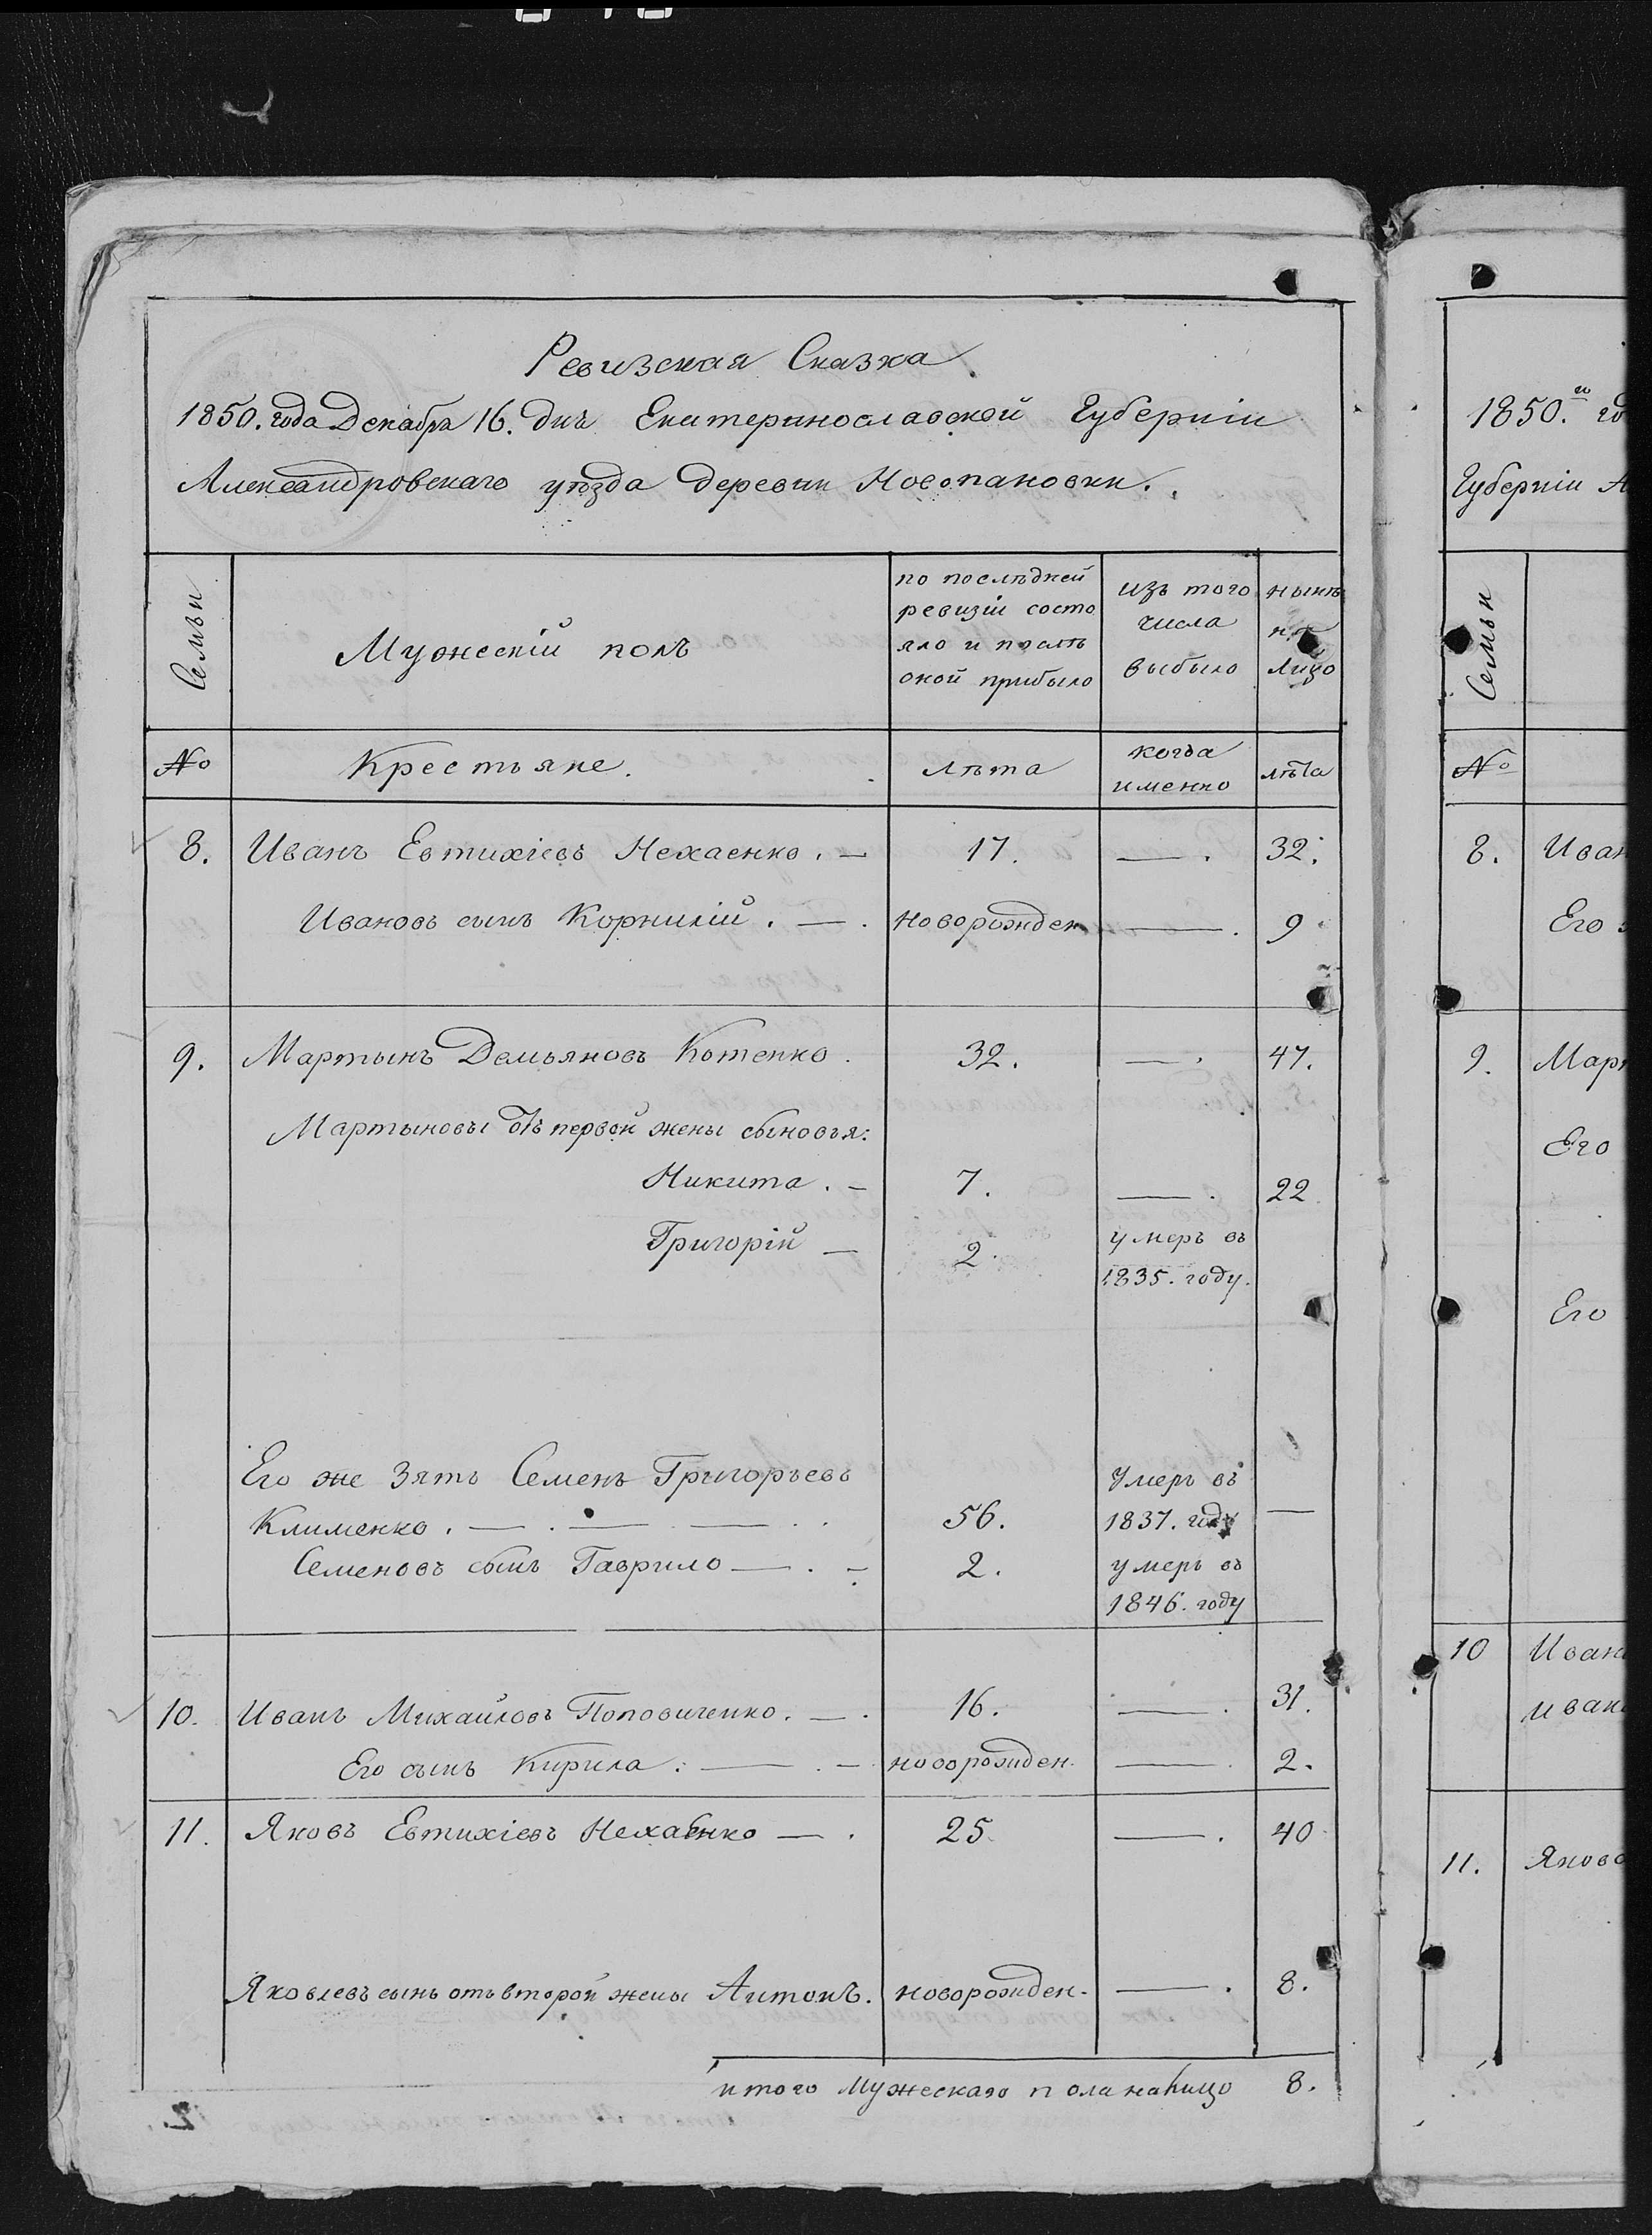 Ревизская Сказка
1850. года Декабря 16. дня Екатеринославской Губерніи
Александровскаго уѣзда деревни Новопановки.
Семьи
Мужескій полъ
по послѣдней
ревизіи состо
яло и послѣ
оной прибыло
изъ того
числа
выбыло
нынѣ
на
Лицо
№
Крестьяне.
Лѣта
когда
именно
лѣта
8. Иванъ Евтихіевъ Нехаенко. — 17. — . 32.
Ивановъ сынъ Корнилій. — . новорожден — . 9
9. Мартынъ Демьяновъ Котенко. 32. — . 47.
Мартыновы отъ первой жены сыновья:
Никита. — 7. — . 22
Григорій — 2. умеръ въ
1835. году.
Его же Зять Семенъ Григорьевъ Умеръ въ
Клименко. — . — — . . 56. 1837. году —
Семеновъ сынъ Гаврило — . — 2. умеръ въ
1846. году
10. Иванъ Михайловъ Поповиченко. — . 16. — . 31.
Его сынъ Кирила: — . — новорожден. — . 2.
11. Яковъ Евтихіевъ Нехаенко — . 25 — . 40
Яковлевъ сынъ отъ второй жены Антонъ. новорожден. — . 8.
итого Мужескаго пола налицо 8.
1850.го го
Губерніи А
Семьи
№
8. Иван
Его
9. Март
Его
Его
10 Иван
иван
11. Яков